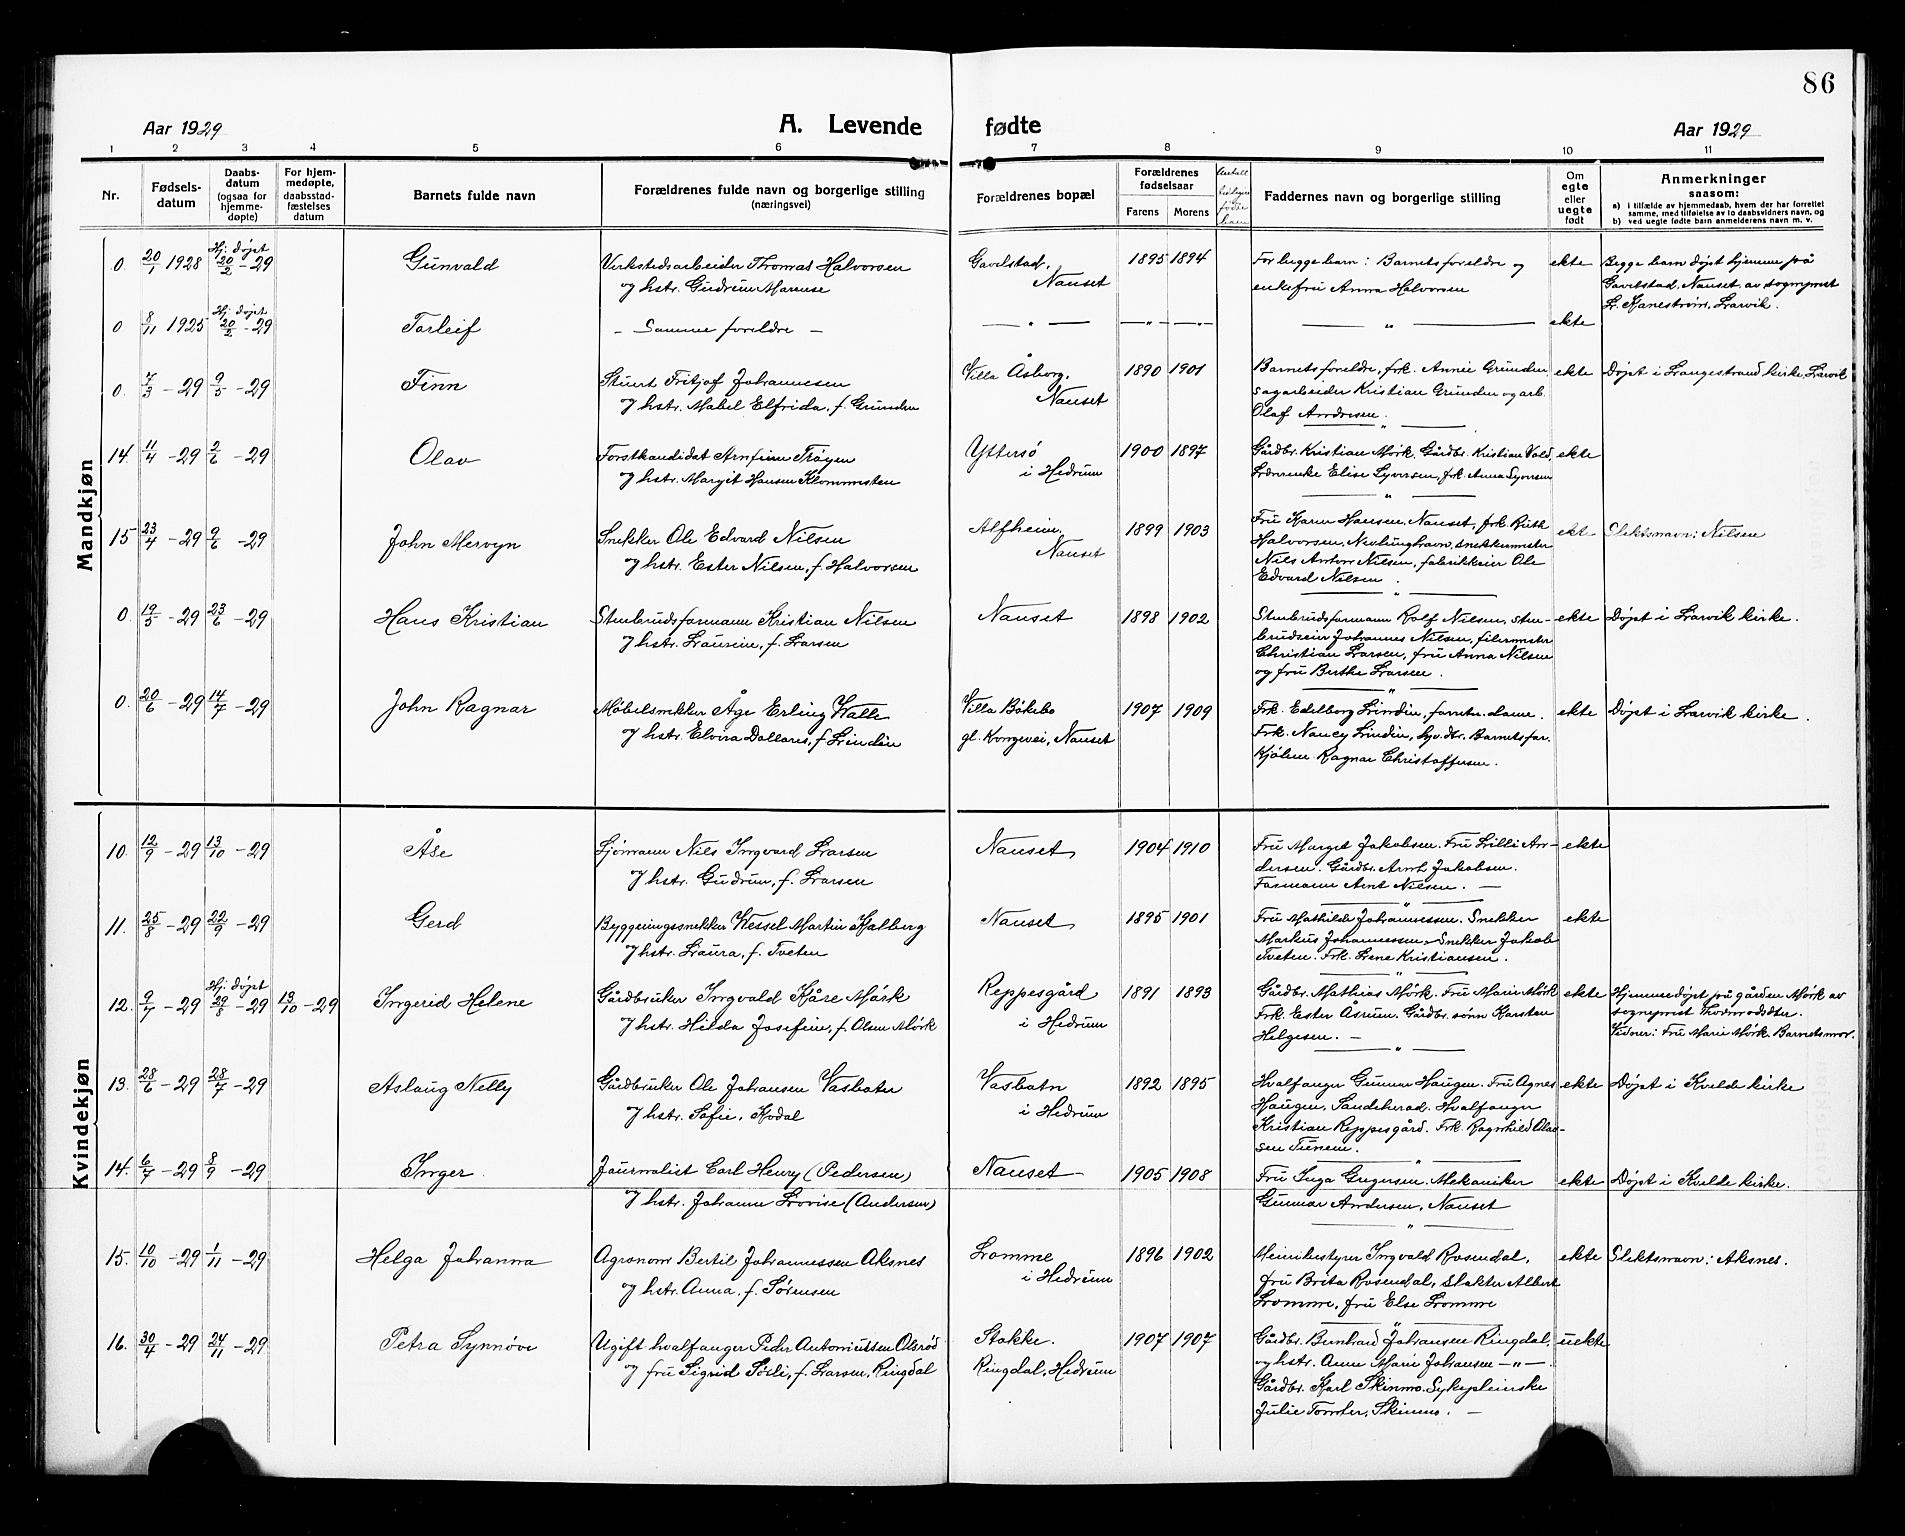 86
Aar 1929
A. Levende fødte
Aar 1929
1 2 3 4 5 6 7 8 9 10 11
Nr.
Fødsels-
datum
Daabs-
datum
(ogsaa for
hjemme-
døpte)
For hjem-
medøpte,
daabsstad-
fæstelses
datum
Barnets fulde navn
Forældrenes fulde navn og borgerlige stilling
(næringsvei)
Forældrenes bopæl
Forældrenes
fødselsaar
Farens Morens
Faddernes navn og borgerlige stilling
Om
egte
eller
uegte
født
Anmerkninger
saasom:
a) i tilfælde av hjemmedaab, hvem der har forrettet
samme, med tilføielse av to daabsvidners navn, og
b) ved uegte fødte barn anmelderens navn m. v.
Mandkjøn
0. 20/1 1928 Hj. døpt 20/2 -29 Gunvald
Verkstedsarbeider Thomas Halvorsen
og hstr. Gudrun Marense
Gavelstad,
Nanset
1895 1894
For begge barn: Barnets foreldre og
enkefru Anna Halvorsen
ekte
Begge barn døpt hjemme på
Gavelstad, Nanset, av sogneprest
Kanestrøm, Larvik.
0 8/11 1925 Hj. døpt 20/2 -29 Torleif
- Samme foreldre -
— " — — " — — " —
ekte
0. 7/3 -29 9/5 -29 Finn
Stuert Fritjof Johannesen
og hstr. Mabel Elfrida, f. Grunden
Villa Åsborg,
Nanset
1890 1901
Barnets foreldre, frk. Annie Grunden
sagarbeider Kristian Grunden og arb.
Olaf Andresen.
ekte
Døpt i Langestrand kirke, Larvik
14. 11/4 -29 2/6 -29 Olav
Forstkandidat Arnfinn Trøyen
og hstr. Margit Hansen Klommesten
Yttersø
i Hedrum
1900 1897
Gårdbr. Kristian Mørk. Gårdbr. Kristian Vold
Lærerinke Elise Syversen, frk. Anna Syversen
ekte
15 23/4 -29 9/6 -29 John Mervyn
Snekker Ole Edvard Nilsen
og hstr. Ester Nilsen, f. Halvorsen
Alfheim,
Nanset
1899 1903
Fru Karen Hansen, Nanset, frk. Ruth
Halvorsen, Nevlunghavn, snekkermester
Nils Anton Nilsen, fabrikkeier Ole
Edvard Nilsen.
ekt-
Slektsnavn: Nilsen
0. 19/5 -29 23/6 -29 Hans Kristian
Stenbrudsformann Kristian Nilsen
og hstr. Laurine, f. Larsen
Nanset
1898 1902
Stenbrudsformann Rolf Nilsen, sten-
brudseier Johannes Nilsen, filermester
Christian Larsen, fru Anna Nilsen
og fru Berthe Larsen.
ekte
Døpt i Larvik kirke.
0. 20/6 -29 14/7 -29 John Ragnar
Møbelsnekker Åge Erling Walle
og hstr. Elvira Dollares, f. Lindén
Villa Bøkebo
gl. Kongevei, Nanset
1907 1909
Frk. Edelborg Lindén, forretn.dame.
Frk. Nancy Lindén, Barnets far.
Ragnar Christoffersen.
ekte
Døpt i Larvik kirke.
Kvindekjøn
10. 12/9 -29 13/10 -29 Åse
Sjømann Nils Ingvard Larsen
og hstr. Gudrun, f. Larsen
Nanset
1904 1910
Fru Margit Jakobsen. Fru Lilli An-
dersen. Gårdbr. Arnt Jakobsen.
Formann Arnt Nilsen. —
ekte
11. 25/8 -29 22/9 -29 Gerd
Byggningssnekker Wessel Martin Halberg
og hstr. Laura, f. Tveten
Nanset
1895 1901
Fru Mathilde Johannessen. Snekker
Markus Johannessen. Snekker Jakob
Tveten. Frk. Lene Kristiansen.
ekte
12. 9/7 -29 Hj. døpt 29/8 -29 13/10 -29 Ingerid Helene
Gårdbruker Ingvald Kåre Mørk
og hstr. Hilda Josefine, f. Olsen Mørk
Reppesgård
i Hedrum
1891 1893
Gårdbr. Mathias Mørk. Fru Marie Mørk
Frk. Ester Asrum. Gårdbr.sønn Karsten
Helgesen. —
ekte
Hjemmedøpt på gården Mørk av
sogneprest Thormodsæter.
Vidner: Fru Marie Mørk. Barnets mor.
13. 28/6 -29 28/7 -29 Aslaug Nelly
Gårdbruker Ole Johansen Vasbotn
og hstr. Sofie, Kodal
Vasbotn
i Hedrum
1892 1895
Hvalfanger Gunnar Haugen. Fru Agnes
Haugen, Sandeherad. Hvalfanger
Kristian Reppesgård. Frk. Ragnhild Olav-
sen
ekte
Døpt i Kvelde kirke
14. 6/7 -29 8/9 -29 Inger
Journalist Carl Henry (Pedersen)
og hstr. Johanne Lovise (Andersen)
Nanset
1905 1908
Fru Inga Gregersen. Mekaniker
Gunnar Andersen, Nanset
ekte
Døpt i Kvelde kirke.
15. 10/10 -29 1/11 -29 Helga Johanna
Agronom Bertil Johannessen Aksnes
og hstr. Anna, f. Sørensen
Lomme
i Hedrum
1896 1902
Meieribestyrer Ingvald Rosendal,
fru Brita Rosendal, slakter Albert
Lomme, fru Else Lomme
ekte
Slektsnavn: Aksnes.
16. 30/4 -29 24/11 -29 Petra Synnøve
Ugift hvalfanger Peder Antoniussen Olsrød
og fru Sigrid Søsli, f. Larsen, Ringdal
Stokke.
Ringdal, Hedrum
1907 1907
Gårdbr. Bernhard Johansen Ringdal,
og hstr. Anne Marie Johansen — " —.
Gårdbr. Karl Skinmo. Sykepleierske
Julie Tomter, Skinmo. —
uekte